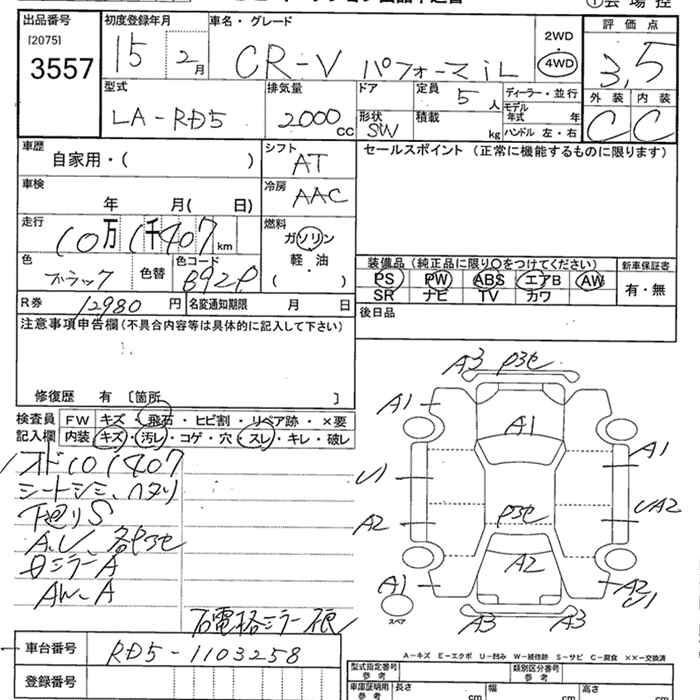 出品番号
[2075]
3557
初度登録年月
15 2月
車名・グレード
CR-V パフォーマiL
2WD
4WD
評価点
3,5
外装 内装
C C
型式
LA-RD5
排気量
2000cc
ドア
形状
SW
定員
5人
積載
kg
ディーラー・並行
モデル年式 年
ハンドル 左・右
車歴
自家用・( )
シフト
AT
セールスポイント (正常に機能するものに限ります)
車検
年 月( 日)
冷房
AAC
走行
10万1千407km
燃料
ガソリン
軽・油
( )
色
ブラック
色替
色コード
B92P
装備品(純正品に限り○をつけてください)
PS PW ABS エアB AW
SR ナビ TV カワ
新車保証書
有・無
R券
12980円
名変通知期限 月 日
後日品
注意事項申告欄(不具合内容等は具体的に記入して下さい)
修復歴 有 [箇所 ]
検査員記入欄
FW キズ・飛石・ヒビ割・リペア跡・×要
内装 キズ・汚レ・コゲ・穴・スレ・キレ・破レ
オド101407
シートシミ、ヘタリ
下廻りS
A.U、各P3セ
ミラーA
AW-A
右電格ミラー
A3 P3セ
A1
A1
A1
U1
A2
A2
P3セ
A2
A1
A2
U1
A3 A3
スペア
A-キズ E-エクボ U-凹み W-補修跡 S-サビ C-腐食 ××-交換済
車台番号
RD5-1103258
登録番号
型式指定番号 参考
類別区分番号 参考
車庫証明用 参考
長さ cm 幅 cm 高さ cm